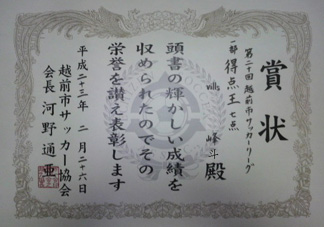 賞状
第二十回 越前市サッカーリーグ
一部 得点王 七点
villis 峰斗 殿
頭書の輝かしい成績を
収められたのでその
栄誉を讃え表彰します
平成二十三年 二月二十六日
越前市サッカー協会
会長 河野通亜